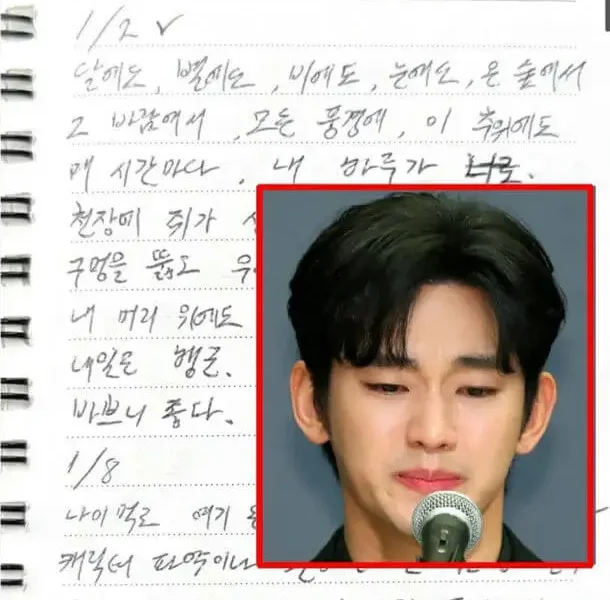 1/2
달에도, 별에도, 비에도, 눈에도, 온 숲에서
그 바람에서, 모든 풍경에, 이 추위에도
매 시간마다. 내 하루가 너로.
천장에 쥐가
구멍을 뚫고
내 머리 위에도
내일은 행군.
바쁘니 좋다.
1/8
나이 먹고 여기
캐릭터 파악이나